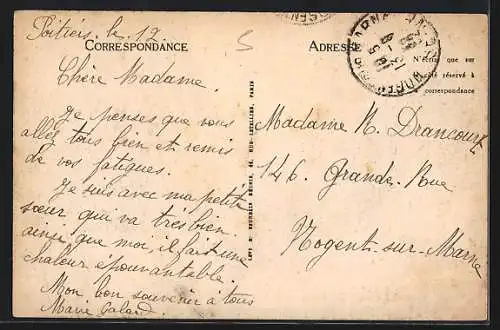 Poitiers, le 12
CORRESPONDANCE
Chère Madame.
Je penses que vous
allez tous bien et remis
de vos fatigues.
Je suis avec ma petite
sœur qui va très bien.
ainsi que moi, il fait une
chaleur épouvantable.
Mon, bon souvenir à tous
Marie
ADRESSE
N'écrire que sur
côté réservé à
correspondance
Madame R. Drancourt
146. Grande-Rue
Nogent-sur-Marne